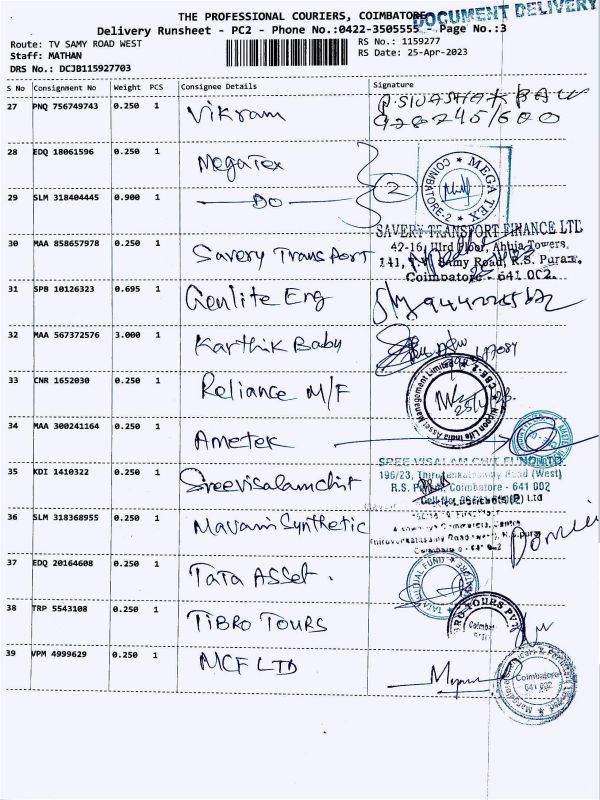 THE PROFESSIONAL COURIERS, COIMBATORE
DOCUMENT DELIVERY
Delivery Runsheet - PC2 - Phone No.:0422-3505555 - Page No.:3
Route: TV SAMY ROAD WEST
RS No.: 1159277
Staff: MATHAN
RS Date: 25-Apr-2023
DRS No.: DCJB115927703
S No Consignment No Weight PCS Consignee Details Signature
27 PNQ 756749743 0.250 1 Vikram
28 EDQ 18061596 0.250 1 MegaTex
MEGA TEX COIMBATORE-2
29 SLM 318404445 0.900 1 Do 2
SAVERY TRANSPORT FINANCE LTD
30 MAA 858657978 0.250 1 Savery Transport
42-16, IIIrd Floor, Ahuja Towers,
141, T.V. Samy Road, R.S. Puram,
Coimbatore - 641 002.
31 SPB 10126323 0.695 1 Genlite Eng
32 MAA 567372576 3.000 1 Karthik Baby
33 CNR 1652030 0.250 1 Reliance M/F
Nippon Life India Asset Management Limited
34 MAA 300241164 0.250 1 Ametek
SREE VISALAM CHIT FUND LTD
35 KDI 1410322 0.250 1 Sreevisalamchit
196/23, Thiruvenkatasamy Road (West)
R.S. Puram, Coimbatore - 641 002
36 SLM 318368955 0.250 1 Mavani Synthetic
37 EDQ 20164608 0.250 1 TATA ASSet.
TATA MUTUAL FUND
38 TRP 5543108 0.250 1 TIBRO TOURS
TIBRO TOURS PVT
Coimbat
39 VPM 4999629 0.250 1 MCF LTD
Coimbatore
641 002